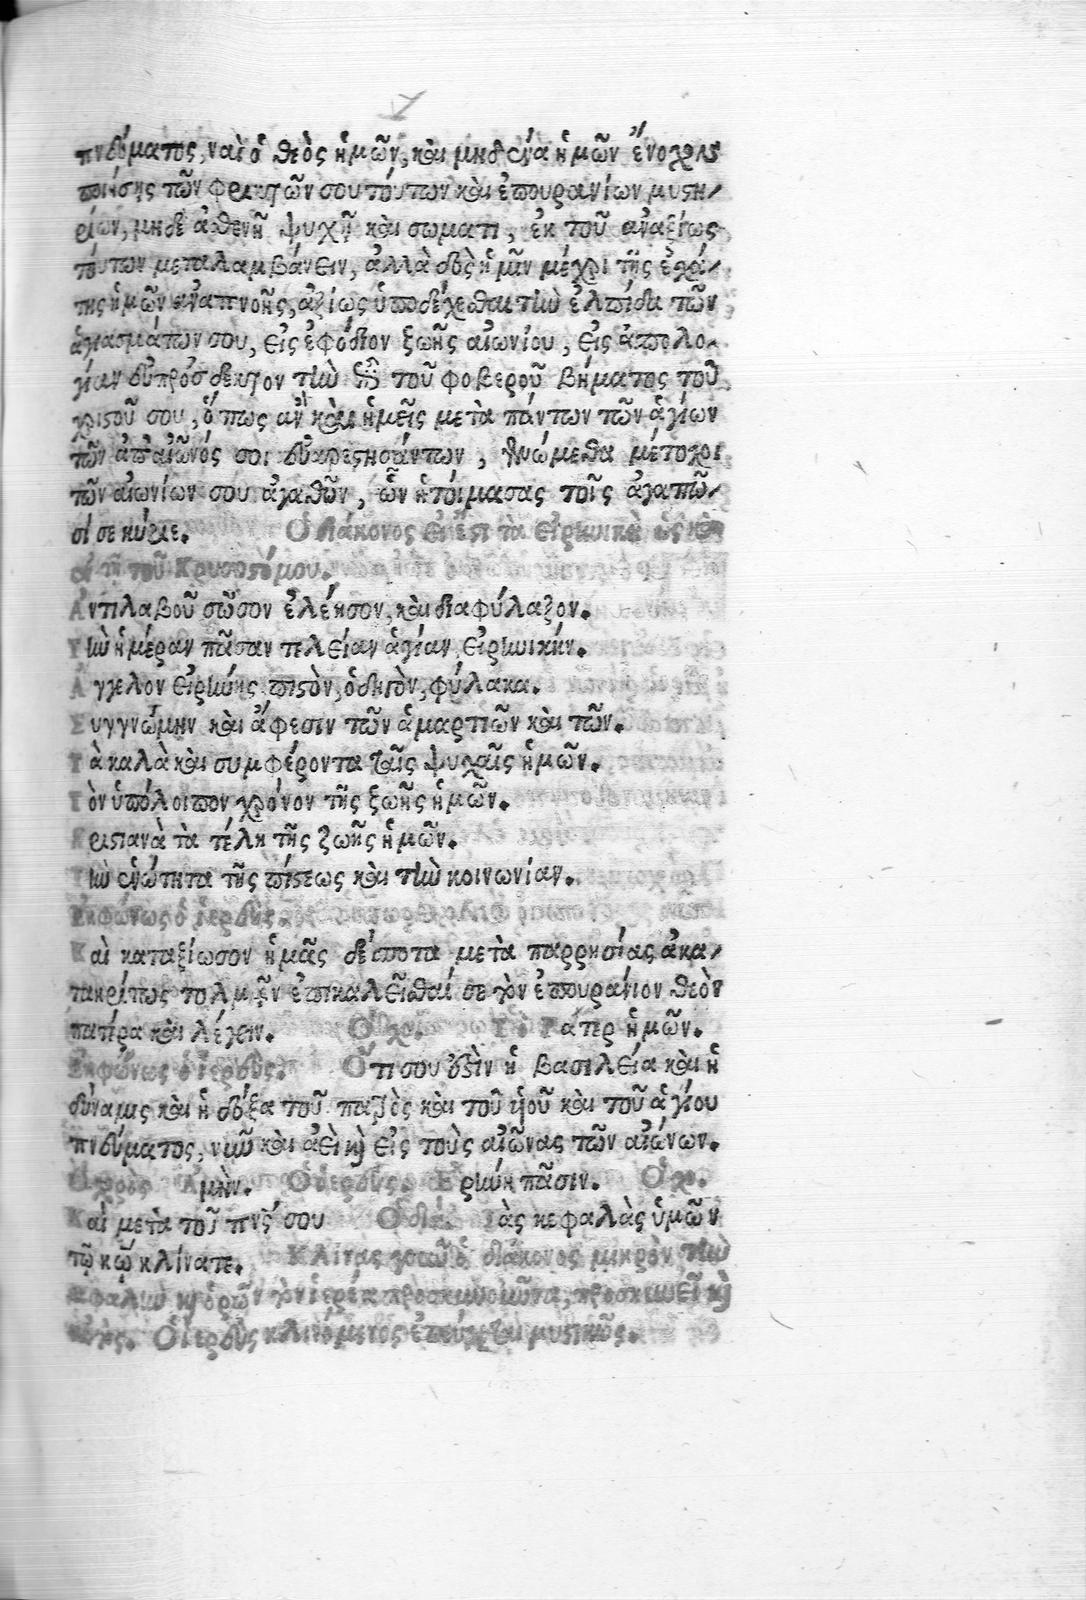 πνεύματος, ναὶ ὁ θεὸς ἡμῶν, καὶ μηδένα ἡμῶν ἔνοχον
ποιήσῃς τῶν φρικτῶν σου τούτων καὶ ἐπουρανίων μυστη-
ρίων, μηδὲ ἀσθενῆ ψυχῇ καὶ σωματι, ἐκ τοῦ ἀναξίως
τούτων μεταλαμβάνειν, ἀλλὰ δὸς ἡμῖν μέχρι τῆς ἐσχά-
της ἡμῶν ἀναπνοῆς, ἀξίως ὑποδέχεσθαι τὴν ἐλπίδα τῶν
ἁγιασμάτων σου, εἰς ἐφόδιον ζωῆς αἰωνίου, εἰς ἀπολο-
γίαν εὐπρόσδεκτον τὴν ἐπὶ τοῦ φοβεροῦ βήματος τοῦ
χριστοῦ σου, ὅπως ἂν καὶ ἡμεῖς μετὰ πάντων τῶν ἁγίων
τῶν ἀπ' αἰῶνός σοι εὐαρεστησάντων, γενώμεθα μέτοχοι
τῶν αἰωνίων σου ἀγαθῶν, ὧν ἡτοίμασας τοῖς ἀγαπῶ-
σί σε κύριε. Ὁ διάκονος τὰ εἰρηνικὰ ὡς καὶ
τοῦ Χρυσοστόμου.
Ἀντιλαβοῦ σῶσον ἐλέησον, καὶ διαφύλαξον.
Τὴν ἡμέραν πᾶσαν τελείαν ἁγίαν, εἰρηνικήν.
Ἄγγελον εἰρήνης πιστὸν, ὁδηγὸν, φύλακα.
Συγγνώμην καὶ ἄφεσιν τῶν ἁμαρτιῶν καὶ τῶν.
Τὰ καλὰ καὶ συμφέροντα ταῖς ψυχαῖς ἡμῶν.
Τὸν ὑπόλοιπον χρόνον τῆς ζωῆς ἡμῶν.
Χριστιανὰ τὰ τέλη τῆς ζωῆς ἡμῶν.
Τὴν ἑνότητα τῆς πίστεως καὶ τὴν κοινωνίαν.
Ἐκφώνως ὁ ἱερεύς.
Καὶ καταξίωσον ἡμᾶς δέσποτα, μετὰ παρρησίας ἀκα-
τακρίτως τολμᾶν ἐπικαλεῖσθαί σε τὸν ἐπουράνιον θεὸν
πατέρα καὶ λέγειν. Ὁ χο. Τὸ Πάτερ ἡμῶν.
Ἐκφώνως ὁ ἱερεύς. Ὅτι σου ἐστὶν ἡ βασιλεία καὶ ἡ
δύναμις καὶ ἡ δόξα τοῦ πατρὸς καὶ τοῦ υἱοῦ καὶ τοῦ ἁγίου
πνεύματος, νῦν καὶ ἀεὶ καὶ εἰς τοὺς αἰῶνας τῶν αἰώνων.
Ὁ χορὸς Ἀμήν. Ὁ ἱερεύς. Εἰρήνη πᾶσιν. Ὁ χο.
Καὶ μετὰ τοῦ πνς σου Ὁ διά. Τὰς κεφαλὰς ὑμῶν
τῷ κῳ κλίνατε. Κλίνας γοῦν ὁ διάκονος μικρὸν τὴν
κεφαλὴν καὶ ὁρῶν τὸν ἱερέα προσκυνοῦντα, προσκυνεῖ καὶ
αὐτός. Ὁ ἱερεὺς κλινόμενος ἐπεύχεται μυστικῶς.